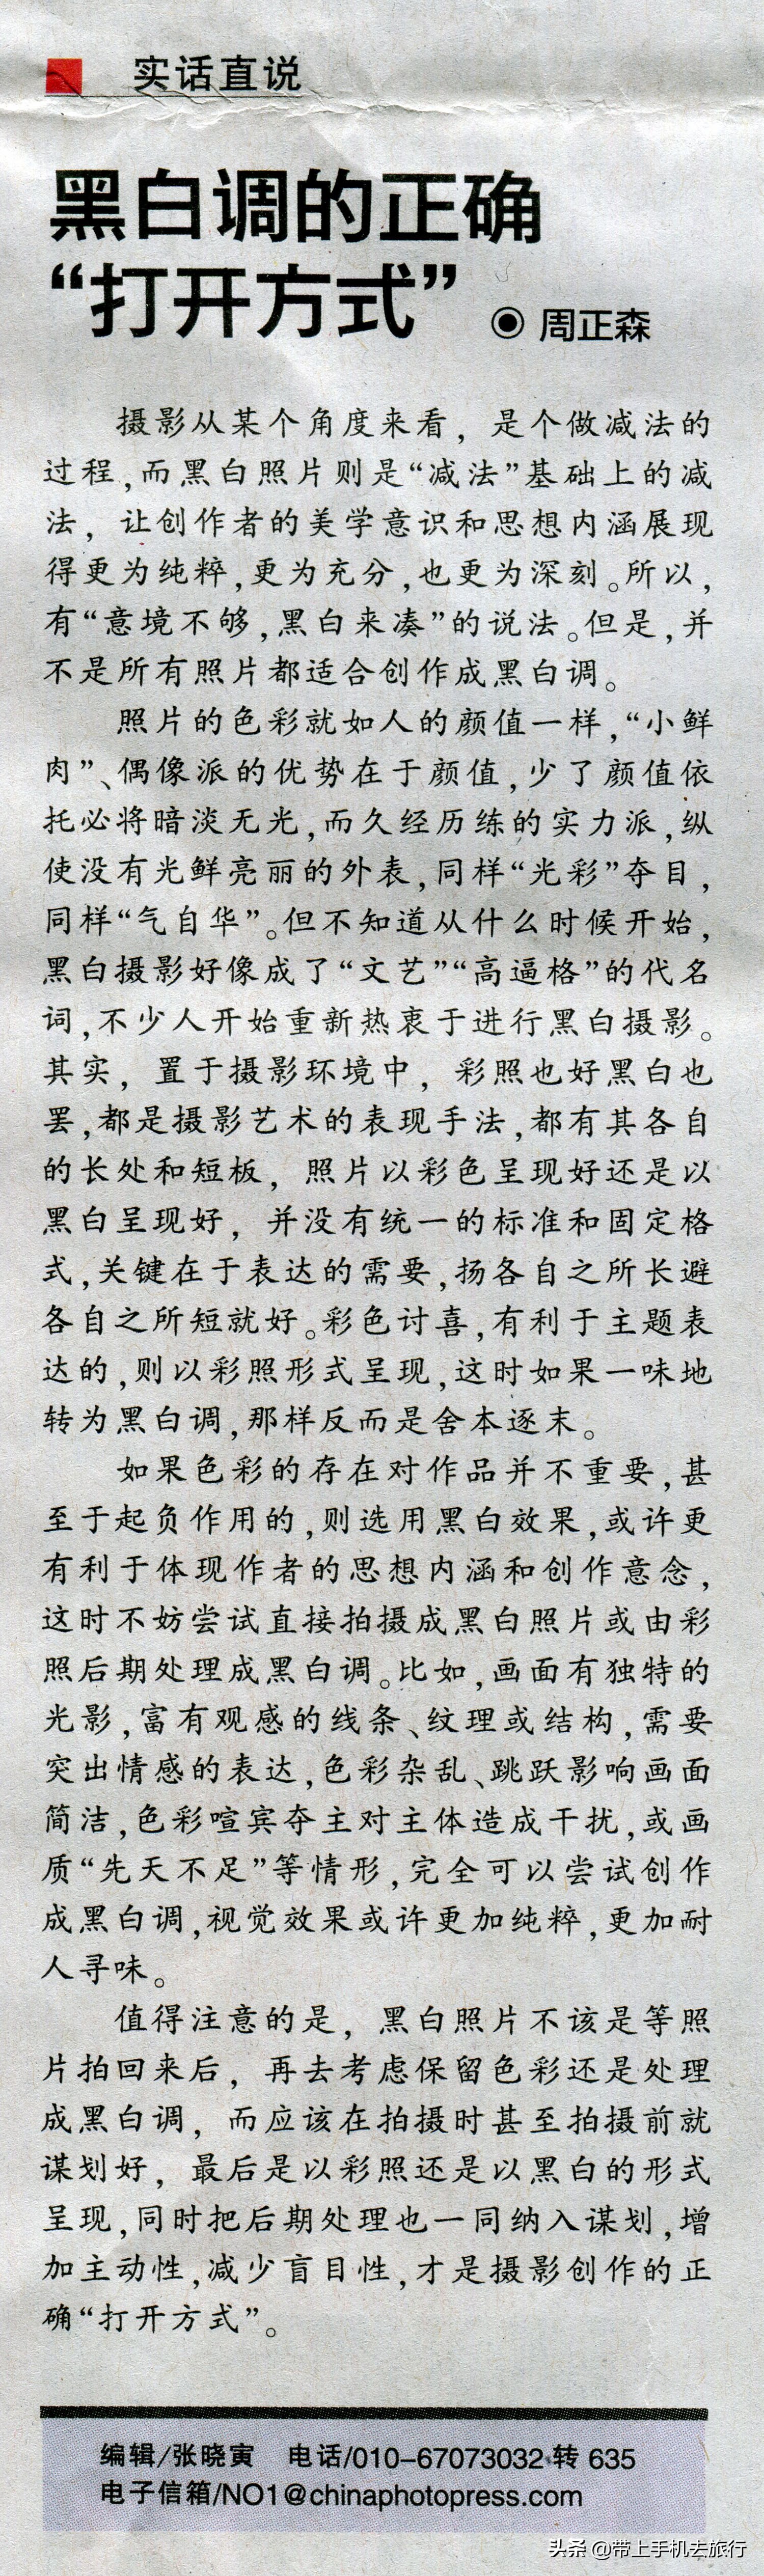 实话直说
黑白调的正确
“打开方式” ◉ 周正森
摄影从某个角度来看，是个做减法的
过程,而黑白照片则是“减法”基础上的减
法，让创作者的美学意识和思想内涵展现
得更为纯粹,更为充分,也更为深刻。所以,
有“意境不够,黑白来凑”的说法。但是,并
不是所有照片都适合创作成黑白调。
照片的色彩就如人的颜值一样,“小鲜
肉”、偶像派的优势在于颜值,少了颜值依
托必将暗淡无光,而久经历练的实力派,纵
使没有光鲜亮丽的外表,同样“光彩”夺目,
同样“气自华”。但不知道从什么时候开始,
黑白摄影好像成了“文艺”“高逼格”的代名
词,不少人开始重新热衷于进行黑白摄影。
其实，置于摄影环境中，彩照也好黑白也
罢,都是摄影艺术的表现手法,都有其各自
的长处和短板，照片以彩色呈现好还是以
黑白呈现好，并没有统一的标准和固定格
式,关键在于表达的需要,扬各自之所长避
各自之所短就好。彩色讨喜,有利于主题表
达的,则以彩照形式呈现,这时如果一味地
转为黑白调,那样反而是舍本逐末。
如果色彩的存在对作品并不重要,甚
至于起负作用的,则选用黑白效果,或许更
有利于体现作者的思想内涵和创作意念,
这时不妨尝试直接拍摄成黑白照片或由彩
照后期处理成黑白调。比如,画面有独特的
光影,富有观感的线条、纹理或结构,需要
突出情感的表达,色彩杂乱、跳跃影响画面
简洁,色彩喧宾夺主对主体造成干扰,或画
质“先天不足”等情形,完全可以尝试创作
成黑白调,视觉效果或许更加纯粹,更加耐
人寻味。
值得注意的是，黑白照片不该是等照
片拍回来后，再去考虑保留色彩还是处理
成黑白调，而应该在拍摄时甚至拍摄前就
谋划好，最后是以彩照还是以黑白的形式
呈现,同时把后期处理也一同纳入谋划,增
加主动性,减少盲目性,才是摄影创作的正
确“打开方式”。
编辑/张晓寅 电话/010-67073032转 635
电子信箱/NO1@chinaphotopress.com
头条 @带上手机去旅行